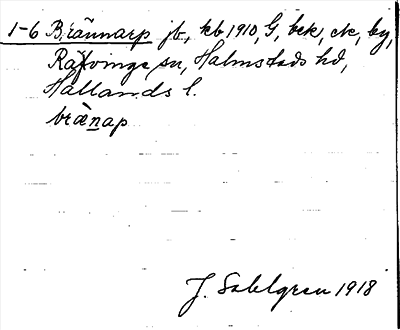 1-6 Brännarp jb, kb 1910, G, bek, ek, by,
Rafvinge sn, Halmstads hd,
Hallands l.
bræ̀nap
J. Sahlgren 1918